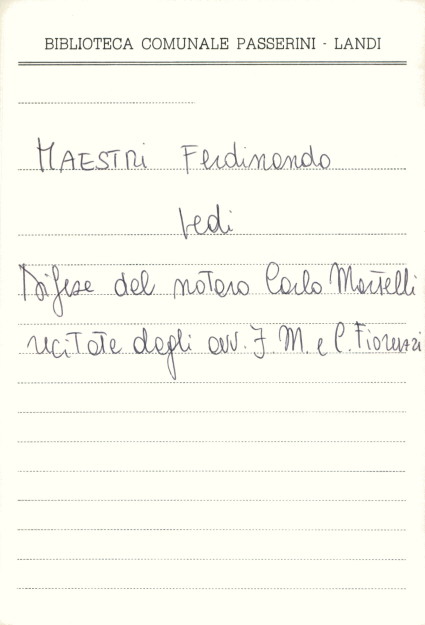 BIBLIOTECA COMUNALE PASSERINI - LANDI
MAESTRI Ferdinando
Vedi
Difese del notaro Carlo Martelli
recitate dagli avv. F. M. e C. Fioruzzi